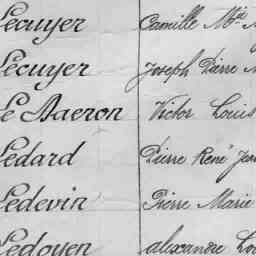 Lecuyer Camille Mie
Lecuyer Joseph Pierre
Le Daeron Victor Louis
Ledard Pierre René Jean
Ledevin Pierre Marie
Ledoyen Alexandre Lou